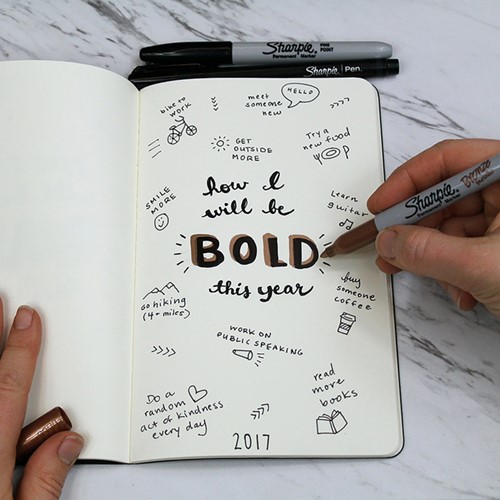 Sharpie FINE POINT
Permanent Marker
Sharpie Pen.
bike to
work
meet
someone
new
HELLO
GET
OUTSIDE
MORE
Try a
new food
SMILE
MORE
how I
will be
BOLD
this year
Learn
guitar
Sharpie Bronze
go hiking
(4+ miles)
buy
someone
coffee
WORK ON
PUBLIC SPEAKING
Do a
random
act of kindness
every day
read
more
books
2017